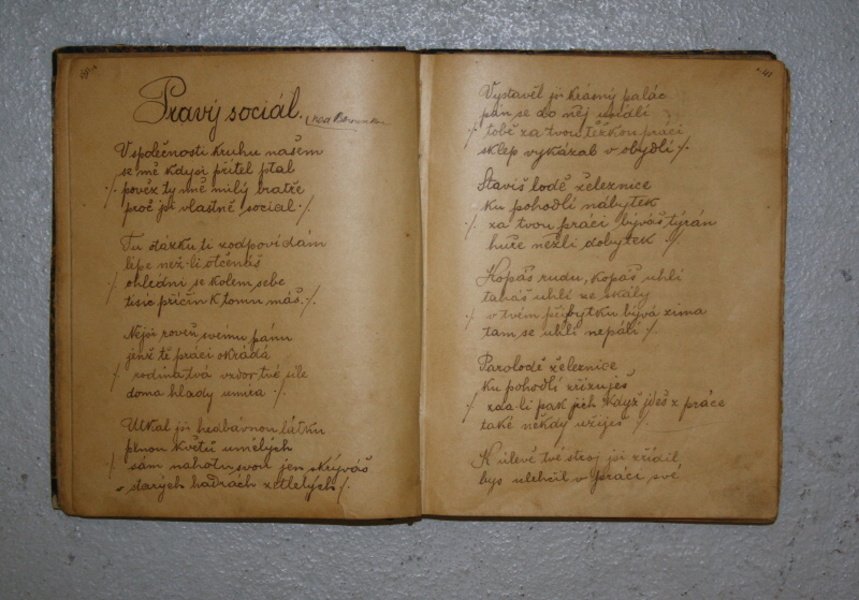 Pravý sociál.
V společnosti kruhu našem
se mě kdysi přítel ptal
./. pověz ty mně milý bratře
proč jsi vlastně social ./.
Tu otázku ti zodpovídám
lépe než-li otčenáš
./. ohledni se kolem sebe
tisíc příčin k tomu máš ./.
Nejsi roveň svému pánu
jenž tě práci okrádá
./. rodina tvá vzdor tvé síle
doma hlady umírá ./.
Utkal jsi hedbávnou látku
plnou květů umělých
./. sám nahotu svou jen skrýváš
starých hadrách zetlelých ./.
41
Vystavěl jsi krásný palác
pán se do něj usídlí
./. tobě za tvou těžkou práci
sklep vykázal v obydlí ./.
Stavíš lodě železnice
ku pohodlí nábytek
./. za tvou práci býváš týrán
huře nežli dobytek ./.
Kopáš rudu, kopáš uhlí
taháš uhlí ze skály
./. v tvém příbytku bývá zima
tam se uhlí nepálí ./.
Parolodě železnice
ku pohodlí zřizuješ
./. zda-li pak jich když jdeš z práce
také někdy užiješ ./.
K úlevě tvé stroj jsi zřídil
bys ulehčil v práci své